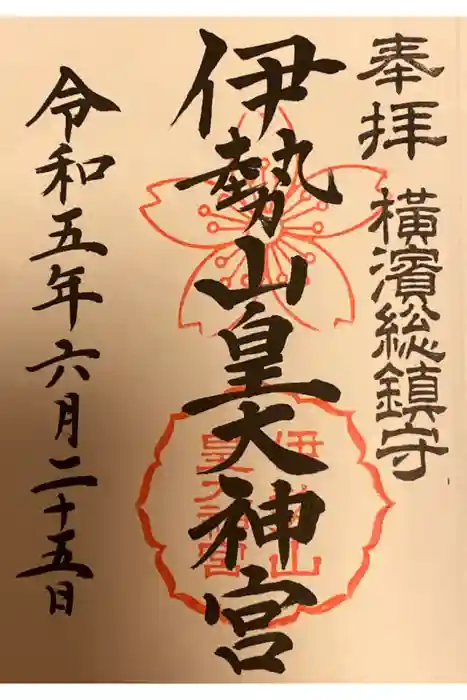 奉拝 横濱総鎮守
伊勢山皇大神宮
令和五年六月二十五日
伊勢山
皇大神宮